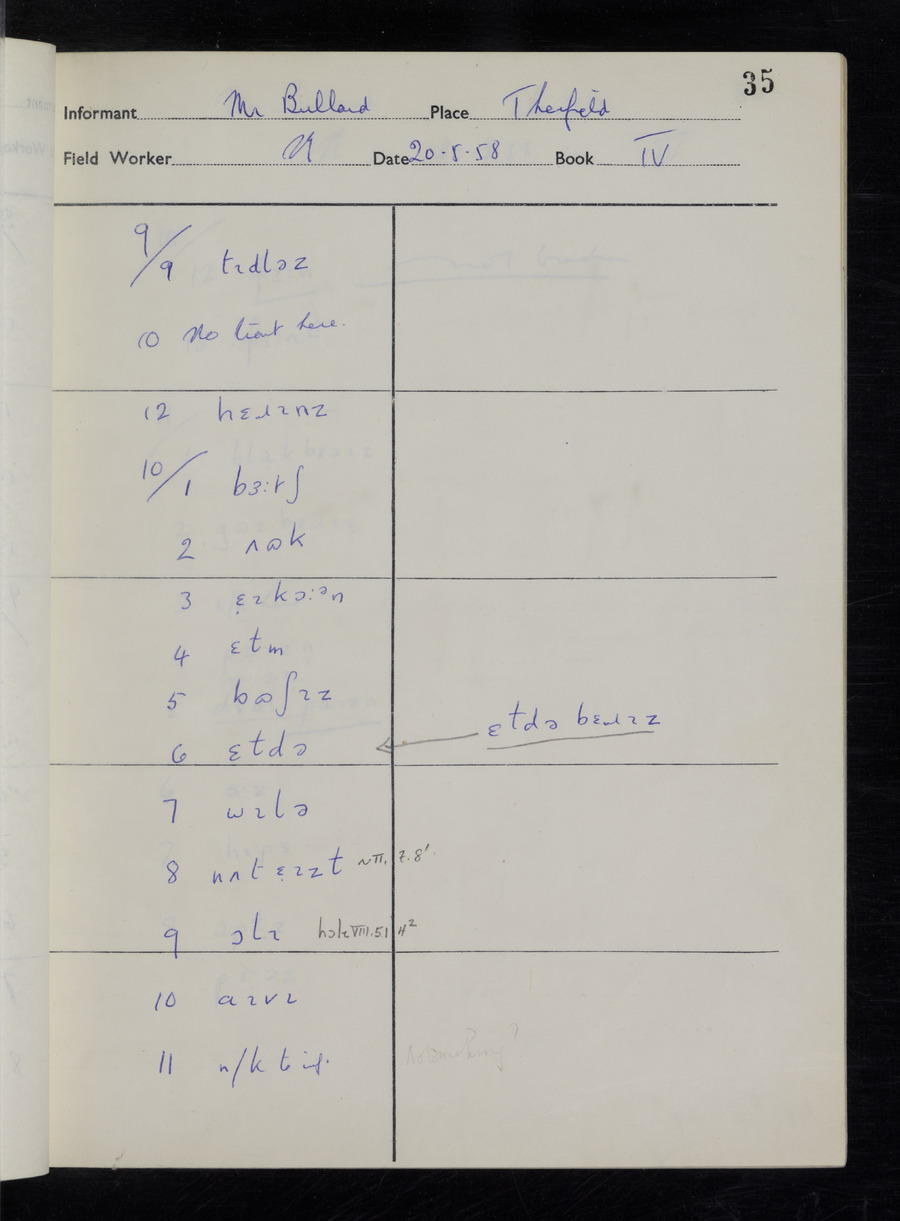 35
Informant Mr Bullard Place Therfield
Field Worker Date 20-5-58 Book IV
9/9 tɪdləz
10 No trout here.
12 hɛɹɪnz
10/1 bɜ:tʃ
2 ʌɷk
3 ɛ̣ɪkɔ:ən
4 ɛtm
5 bɷʃɪz
6 ɛtdə ← ɛtdə bɛɹɪz
7 wɪlə
8 nʌt ɛɪzt ~VI. 7.8'.
9 ɔlɪ hɔlɪ VIII.51 4²
10 aɪvɪ
11 n/k to inf.